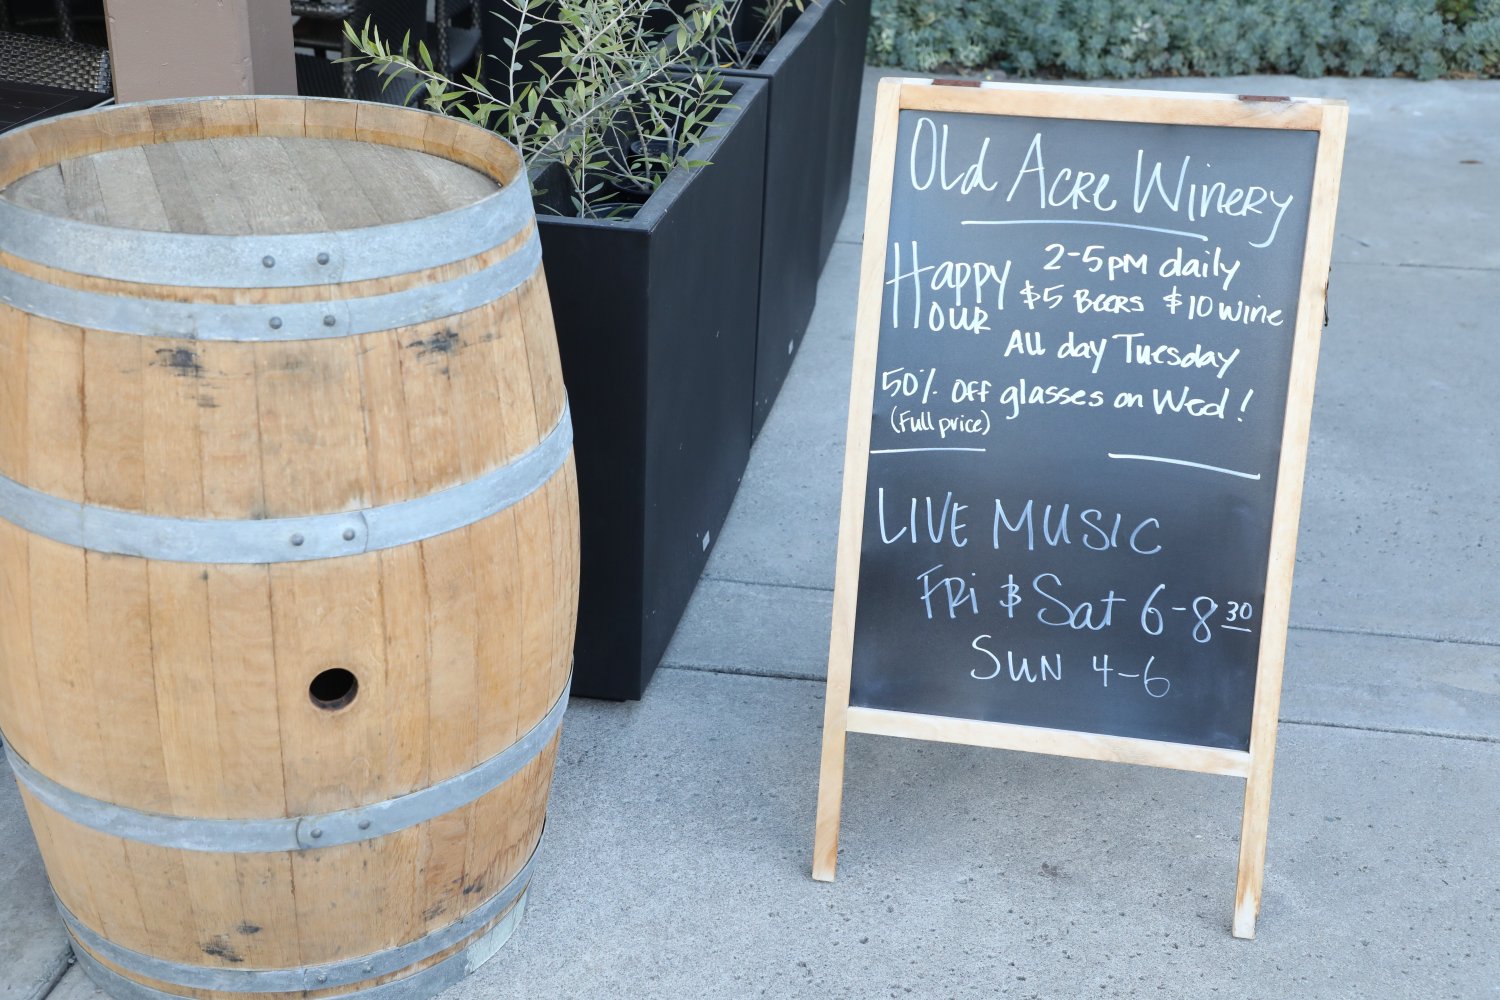 Old Acre Winery
Happy Hour
2-5pm daily
$5 Beers $10 wine
All day Tuesday
50% off glasses on Wed!
(Full price)
LIVE MUSIC
FRi & Sat 6-8 30
SUN 4-6